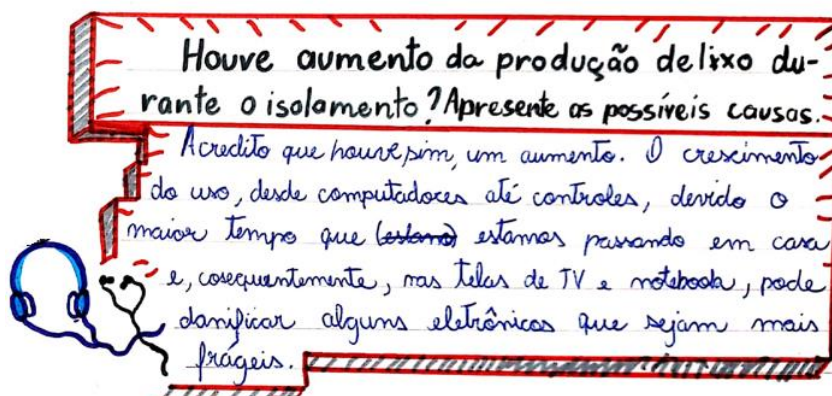 Houve aumento da produção de lixo du-
rante o isolamento? Apresente as possíveis causas.
Acredito que houve, sim, um aumento. O crescimento
do uso, desde computadores até controles, devido o
maior tempo que (estano) estamos passando em casa
e, cosequentemente, nas telas de TV e notebook, pode
danificar alguns eletrônicos que sejam mais
frágeis.